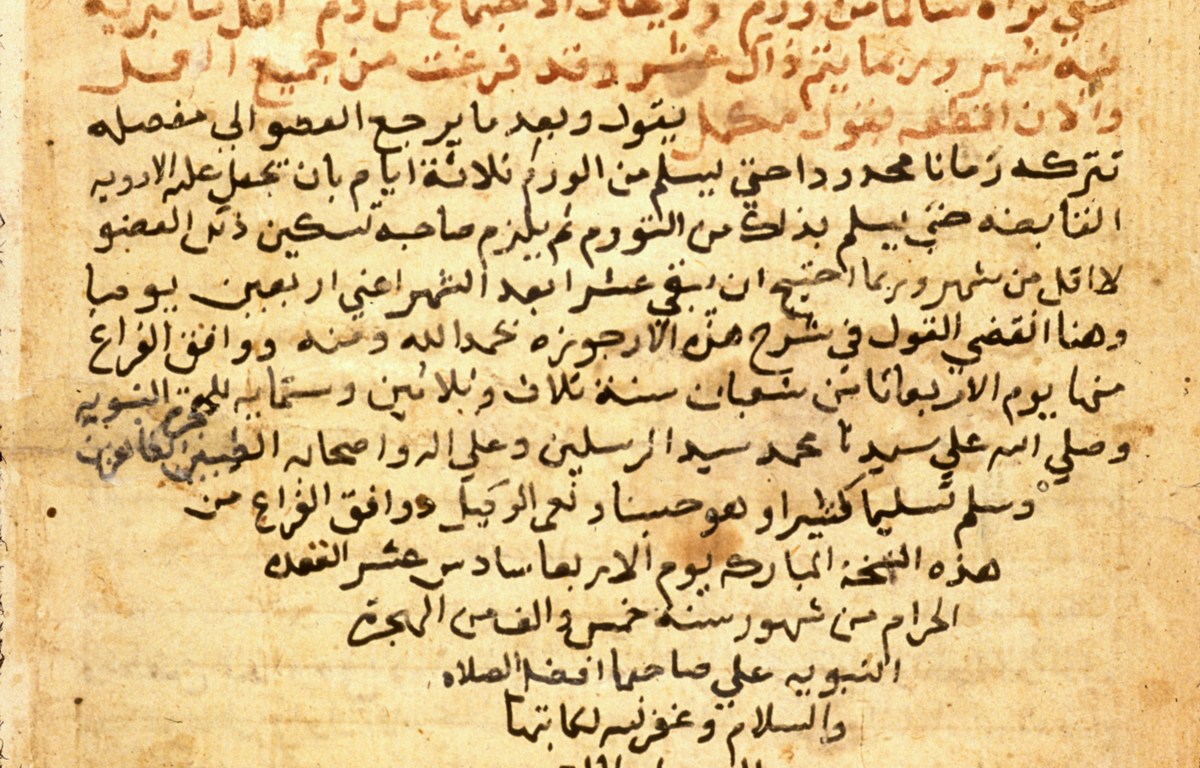 حتي تراه سالما من ورم ولا يخاف الاجتماع من دم اقل ما تبريه
فيه شهر وربما يتم ذاك عشر وقد فرغت من جميع العمل
والان اقطعه بقول مكمل يقول وبعد ما يرجع العضو الي مفصله
تتركه زمانا محدودا حتي يسلم من الورم ثلاثة ايام بان تجعل عليه الادويه
القابضه حتي يسلم بذلك من التورم ثم يلزم صاحبه تسكين ذلك العضو
لا اقل من شهر وربما احتيج ان يبقي عشرا بعد الشهر اعني اربعين يوما
وهنا انقضي القول في شرح هذه الارجوزه بحمد الله ومنه ووافق الفراغ
منها يوم الاربعا من شعبان سنة ثلاث وثلاثين وستمايه للهجرة النبويه
وصلي الله علي سيدنا محمد سيد المرسلين وعلي اله واصحابه الطيبين
وسلم تسليما كثيرا وهو حسبنا ونعم الوكيل ووافق الفراغ من
هذه النسخة المباركه يوم الاربعا سادس عشر القعده
الحرام من شهور سنة خمس والف من الهجرة
النبويه علي صاحبها افضل الصلاه
والسلام وغفر لكاتبها